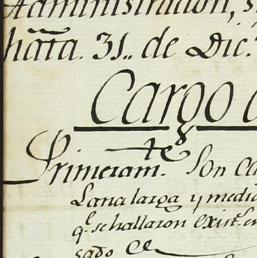 Administracion, s
hata 31.. de Dic.e
Cargo d
Primeram.te Son Ca
Lana larga y media
q.e se hallaron exist.es en